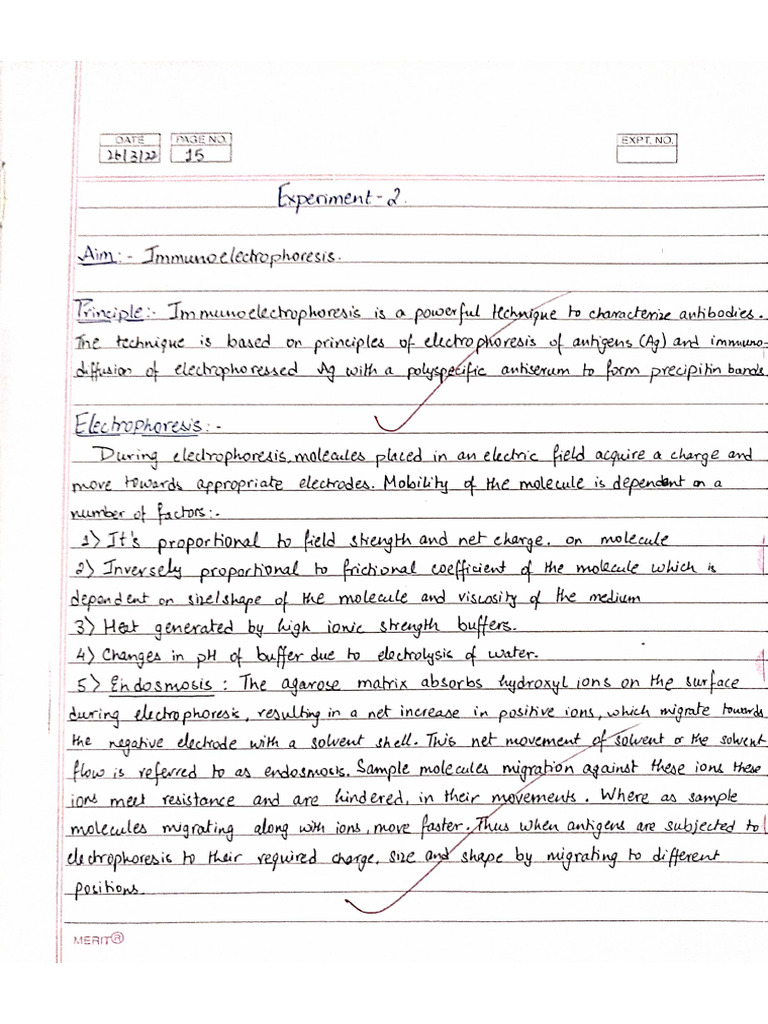 DATE PAGE NO. EXPT. NO.
26/3/22 15
Experiment - 2.
Aim :- Immunoelectrophoresis.
Principle:- Immunoelectrophoresis is a powerful technique to characterize antibodies.
The technique is based on principles of electrophoresis of antigens (Ag) and immuno-
diffusion of electrophoressed Ag with a polyspecific antiserum to form precipitin bands
Electrophoresis:-
During electrophoresis, molecules placed in an electric field acquire a charge and
move towards appropriate electrodes. Mobility of the molecule is dependent on a
number of factors:-
1) It's proportional to field strength and net charge. on molecule
2) Inversely proportional to frictional coefficient of the molecule which is
dependent on size/shape of the molecule and viscosity of the medium
3) Heat generated by high ionic strength buffers.
4) Changes in pH of buffer due to electrolysis of water.
5) Endosmosis : The agarose matrix absorbs hydroxyl ions on the surface
during electrophoresis, resulting in a net increase in positive ions, which migrate towards
the negative electrode with a solvent shell. This net movement of solvent or the solvent
flow is referred to as endosmosis. Sample molecules migration against these ions these
ions meet resistance and are hindered, in their movements. Where as sample
molecules migrating along with ions, move faster. Thus when antigens are subjected to
electrophoresis to their required charge, size and shape by migrating to different
positions.
MERIT®